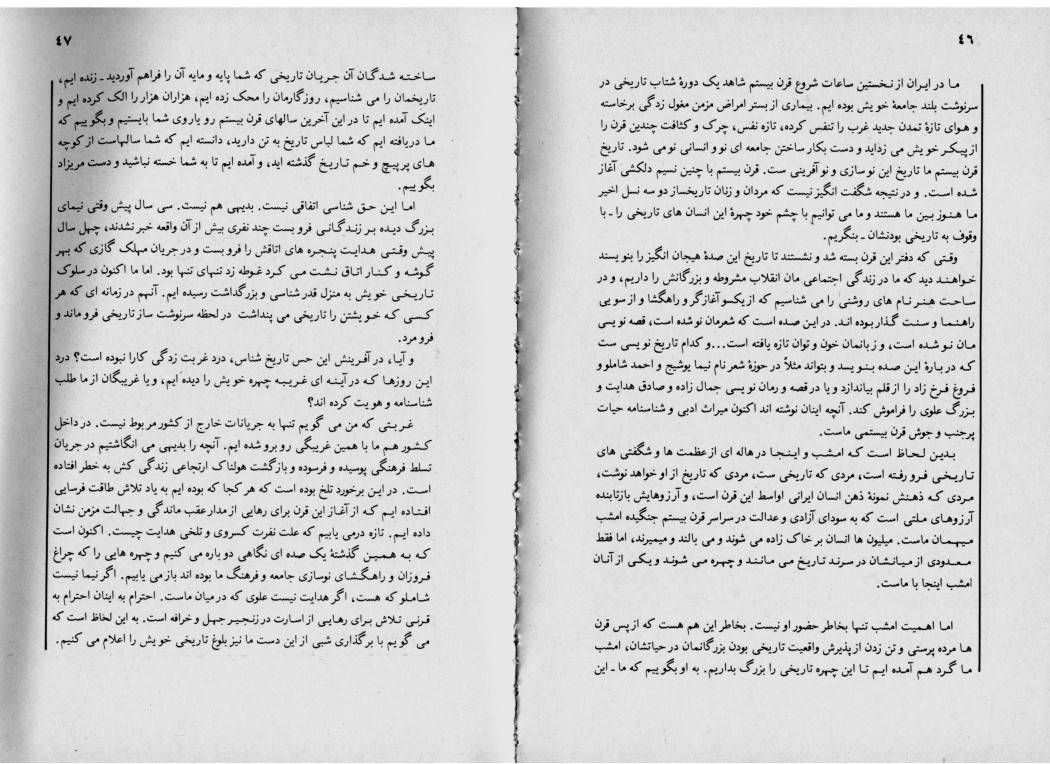 ٤٦
ما در ایران از نخستین ساعات شروع قرن بیستم شاهد یک دورۀ شتاب تاریخی در
سرنوشت بلند جامعۀ خویش بوده ایم. بیماری از بستر امراض مزمن مغول زدگی برخاسته
و هوای تازۀ تمدن جدید غرب را تنفس کرده، تازه نفس، چرک و کثافت چندین قرن را
از پیکر خویش می زداید و دست بکار ساختن جامعه ای نو و انسانی نو می شود. تاریخ
قرن بیستم ما تاریخ این نوسازی و نوآفرینی ست. قرن بیستم با چنین نسیم دلکشی آغاز
شده است. و در نتیجه شگفت انگیز نیست که مردان و زنان تاریخساز دو سه نسل اخیر
ما هنوز بین ما هستند و ما می توانیم با چشم خود چهرۀ این انسان های تاریخی را ـ با
وقوف به تاریخی بودنشان ـ بنگریم.
وقتی که دفتر این قرن بسته شد و نشستند تا تاریخ این صدۀ هیجان انگیز را بنویسند
خواهند دید که ما در زندگی اجتماعی مان انقلاب مشروطه و بزرگانش را داریم، و در
ساحت هنر نام های روشنی را می شناسیم که از یکسو آغازگر و راهگشا و از سویی
راهنما و سنت گذار بوده اند. در این صده است که شعرمان نو شده است، قصه نویسی
مان نو شده است، و زبانمان خون و توان تازه یافته است...و کدام تاریخ نویسی ست
که دربارۀ این صده بنویسد و بتواند مثلاً در حوزۀ شعر نام نیما یوشیج و احمد شاملو و
فروغ فرخ زاد را از قلم بیاندازد و یا در قصه و رمان نویسی جمال زاده و صادق هدایت و
بزرگ علوی را فراموش کند. آنچه اینان نوشته اند اکنون میراث ادبی و شناسنامه حیات
پرجنب و جوش قرن بیستمی ماست.
بدین لحاظ است که امشب و اینجا در هاله ای از عظمت ها و شگفتی های
تاریخی فرو رفته است، مردی که تاریخی ست، مردی که تاریخ از او خواهد نوشت،
مردی که ذهنش نمونۀ ذهن انسان ایرانی اواسط این قرن است، و آرزوهایش بازتابنده
آرزوهای ملتی است که به سودای آزادی و عدالت در سراسر قرن بیستم جنگیده امشب
میهمان ماست. میلیون ها انسان بر خاک زاده می شوند و می بالند و میمیرند، اما فقط
معدودی از میانشان در سرند تاریخ می مانند و چهره می شوند و یکی از آنان
امشب اینجا با ماست.
اما اهمیت امشب تنها بخاطر حضور او نیست. بخاطر این هم هست که از پس قرن
ها مرده پرستی و تن زدن از پذیرش واقعیت تاریخی بودن بزرگانمان در حیاتشان، امشب
ما گرد هم آمده ایم تا این چهره تاریخی را بزرگ بداریم. به او بگوییم که ما ـ این
٤٧
ساخته شدگان آن جریان تاریخی که شما پایه و مایه آن را فراهم آوردید ـ زنده ایم،
تاریخمان را می شناسیم، روزگارمان را محک زده ایم، هزاران هزار را الک کرده ایم و
اینک آمده ایم تا در این آخرین سالهای قرن بیستم رو یاروی شما بایستیم و بگوییم که
ما دریافته ایم که شما لباس تاریخ به تن دارید، دانسته ایم که شما سالهاست از کوچه
های پرپیچ و خم تاریخ گذشته اید، و آمده ایم تا به شما خسته نباشید و دست مریزاد
بگوییم.
اما این حق شناسی اتفاقی نیست. بدیهی هم نیست. سی سال پیش وقتی نیمای
بزرگ دیده بر زندگانی فرو بست چند نفری بیش از آن واقعه خبر نشدند، چهل سال
پیش وقتی هدایت پنجره های اتاقش را فرو بست و در جریان مهلک گازی که بهر
گوشه و کنار اتاق نشت می کرد غوطه زد تنهای تنها بود. اما ما اکنون در سلوک
تاریخی خویش به منزل قدرشناسی و بزرگداشت رسیده ایم. آنهم در زمانه ای که هر
کسی که خویشتن را تاریخی می پنداشت در لحظه سرنوشت ساز تاریخی فرو ماند و
فرو مرد.
و آیا، در آفرینش این حس تاریخ شناس، درد غربت زدگی کارا نبوده است؟ درد
این روزها که در آینه ای غریبه چهره خویش را دیده ایم، و یا غریبگان از ما طلب
شناسنامه و هویت کرده اند؟
غربتی که من می گویم تنها به جریانات خارج از کشور مربوط نیست. در داخل
کشور هم ما با همین غریبگی روبرو شده ایم. آنچه را بدیهی می انگاشتیم در جریان
تسلط فرهنگی پوسیده و فرسوده و بازگشت هولناک ارتجاعی زندگی کش به خطر افتاده
است. در این برخورد تلخ بوده است که هر کجا که بوده ایم به یاد تلاش طاقت فرسایی
افتاده ایم که از آغاز این قرن برای رهایی از مدار عقب ماندگی و جهالت مزمن نشان
داده ایم. تازه درمی یابیم که علت نفرت کسروی و تلخی هدایت چیست. اکنون است
که به همین گذشتۀ یک صده ای نگاهی دوباره می کنیم و چهره هایی را که چراغ
فروزان و راهگشای نوسازی جامعه و فرهنگ ما بوده اند باز می یابیم. اگر نیما نیست
شاملو که هست، اگر هدایت نیست علوی که در میان ماست. احترام به اینان احترام به
قرنی تلاش برای رهایی از اسارت در زنجیر جهل و خرافه است. به این لحاظ است که
می گویم با برگذاری شبی از این دست ما نیز بلوغ تاریخی خویش را اعلام می کنیم.